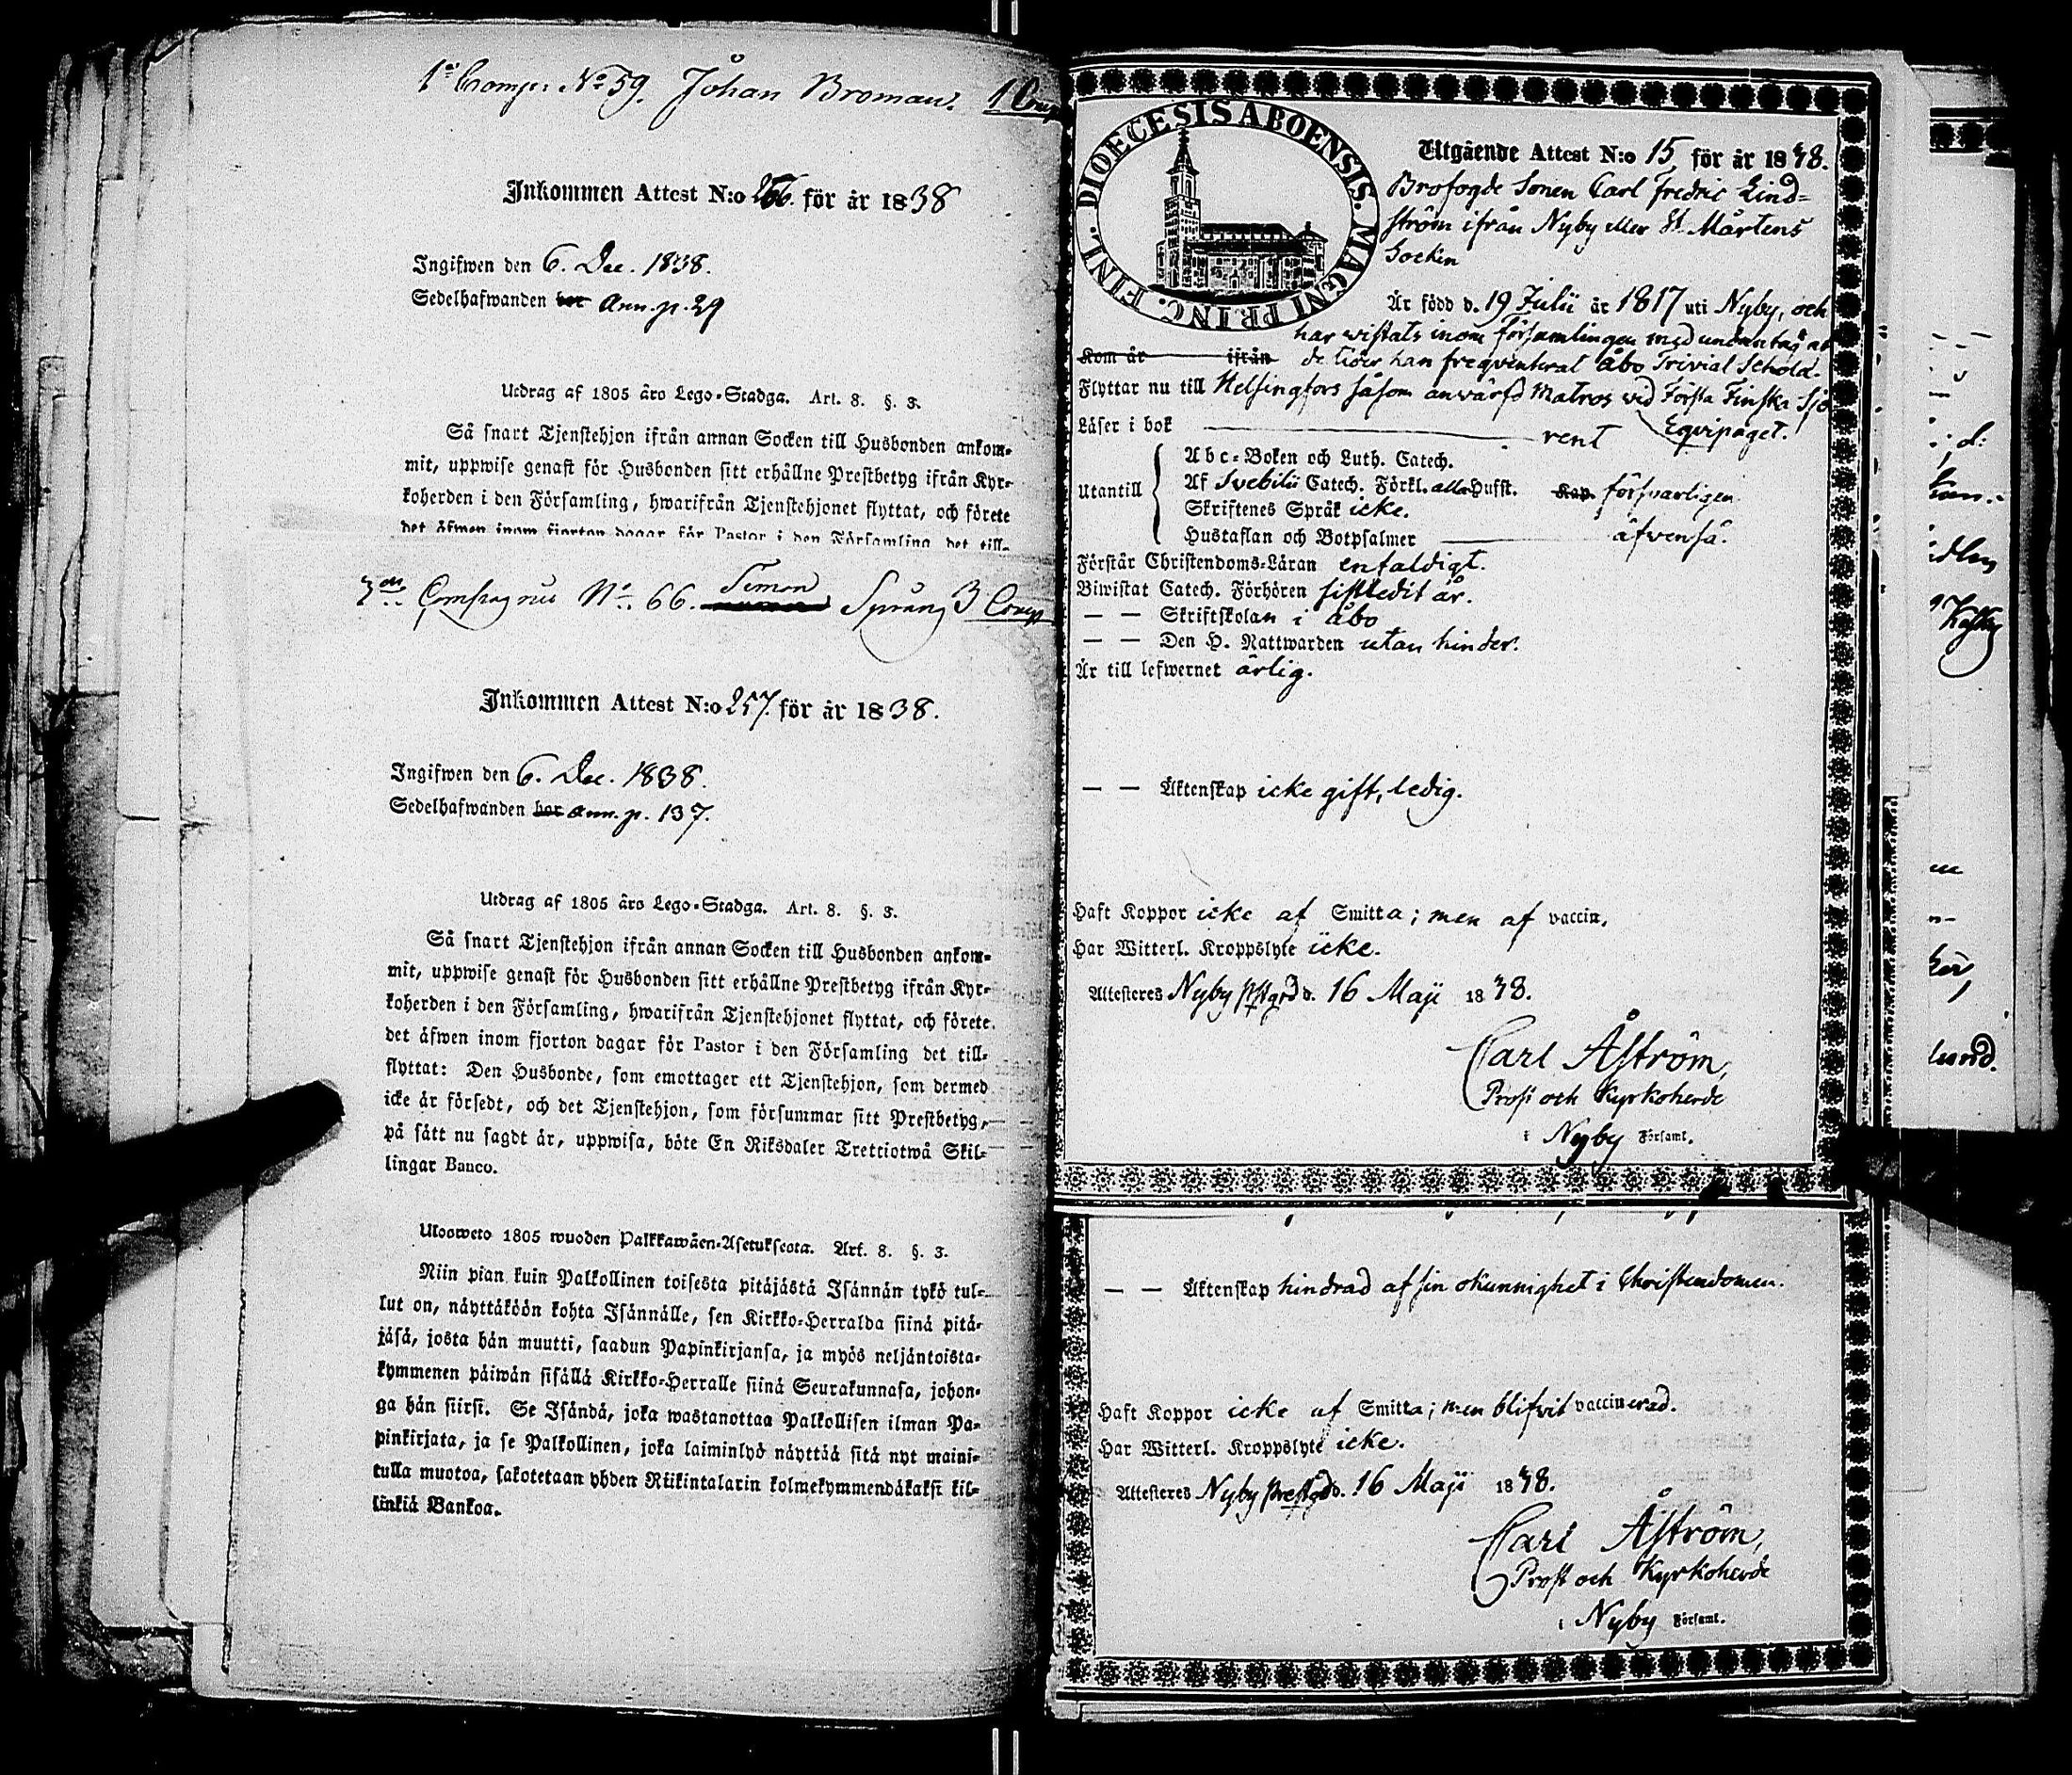 1a Comp: No 59. Johan Broman. 1 Comp
Inkommen Attest N:o 256. för år 1838
Ingifwen den 6. Dec. 1838.
Sedelhafwanden bor Ann. p. 29
Utdrag af 1805 års Lego-Stadga. Art. 8. §. 3.
Så snart Tjenstehjon ifrån annan Socken till Husbonden ankom-
mit, uppwise genast för Husbonden sitt erhållne Prestbetyg ifrån Kyr-
koherden i den Församling, hwarifrån Tjenstehjonet flyttat, och förete
det äfwen inom fjorton dagar för Pastor i den Församling det till-
3die Compagnie No. 66. Simon Sprang 3 Comp
Inkommen Attest N:o 257. för år 1838.
Ingifwen den 6. Dec. 1838.
Sedelhafwanden bor ann. p. 137.
Utdrag af 1805 års Lego-Stadga. Art. 8. §. 3.
Så snart Tjenstehjon ifrån annan Socken till Husbonden ankom-
mit, uppwise genast för Husbonden sitt erhållne Prestbetyg ifrån Kyr-
koherden i den Församling, hwarifrån Tjenstehjonet flyttat, och förete
det äfwen inom fjorton dagar för Pastor i den Församling det till-
flyttat: Den Husbonde, som emottager ett Tjenstehjon, som dermed
icke är försedt, och det Tjenstehjon, som försummar sitt Prestbetyg,
på sätt nu sagdt är, uppwisa, böte En Riksdaler Trettiotwå Skil-
lingar Banco.
Ulosweto 1805 wuoden Palkkawäen-Asetuksesta. Art. 8. §. 3.
Niin pian kuin Palkollinen toisesta pitäjästä Isännän tykö tul-
lut on, näyttäköön kohta Isännälle, sen Kirkko-Herralda siinä pitä-
jäsä, josta hän muutti, saadun Papinkirjansa, ja myös neljäntoista-
kymmenen päiwän sisällä Kirkko-Herralle siinä Seurakunnasa, johon-
ga hän siirsi. Se Isändä, joka wastanottaa Palkollisen ilman Pa-
pinkirjata, ja se Palkollinen, joka laiminlyö näyttää sitä nyt maini-
tulla muotoa, sakotetaan yhden Riikintalarin kolmekymmendäkaksi kil-
linkiä Bankoa.
FINL. DIOECESIS ABOENSIS. MAGNI PRINC.
Utgående Attest N:o 15 för år 1838.
Brofogde Sonen Carl Fredric Lind-
ström ifrån Nyby eller St. Mårtens
Socken
Är född d. 19 Julii år 1817 uti Nyby, och
har wistats inom församlingen med undantag at
Kom år ifrån de tider han freqventerat Åbo Trivial Schola.
Flyttar nu till Helsingfors såsom anwärfd Matros wid Första Finska Sjö
Eqvipaget.
Läser i bok rent
Utantill
Abc-Boken och Luth. Catech.
Af Svebilii Catech. Förkl. alla Hufst. Kap. försvarligen
Skriftenes Språk icke.
Hustaflan och Botpsalmer äfvenså.
Förstår Christendoms-Läran enfaldigt.
Biwistat Catech. Förhören sistledit år.
— — Skriftskolan i Åbo
— — Den H. Nattwarden utan hinder.
Är till lefwernet ärlig.
— — Äktenskap icke gift, ledig.
Haft Koppor icke af Smitta; men af vaccin.
Har Witterl. Kroppslyte icke.
Attesteres Nyby pstgrd d. 16 Maji 1838.
Carl Åström,
Prost och Kyrkoherde
i Nyby Församl.
— — Äktenskap hindrad af sin okunnighet i Christendomen.
Haft Koppor icke af Smitta; men blifvit vaccinerad.
Har Witterl. Kroppslyte icke.
Attesteres Nyby prestgd d. 16 Maji 1838.
Carl Åström,
Prost och Kyrkoherde
i Nyby Församl.